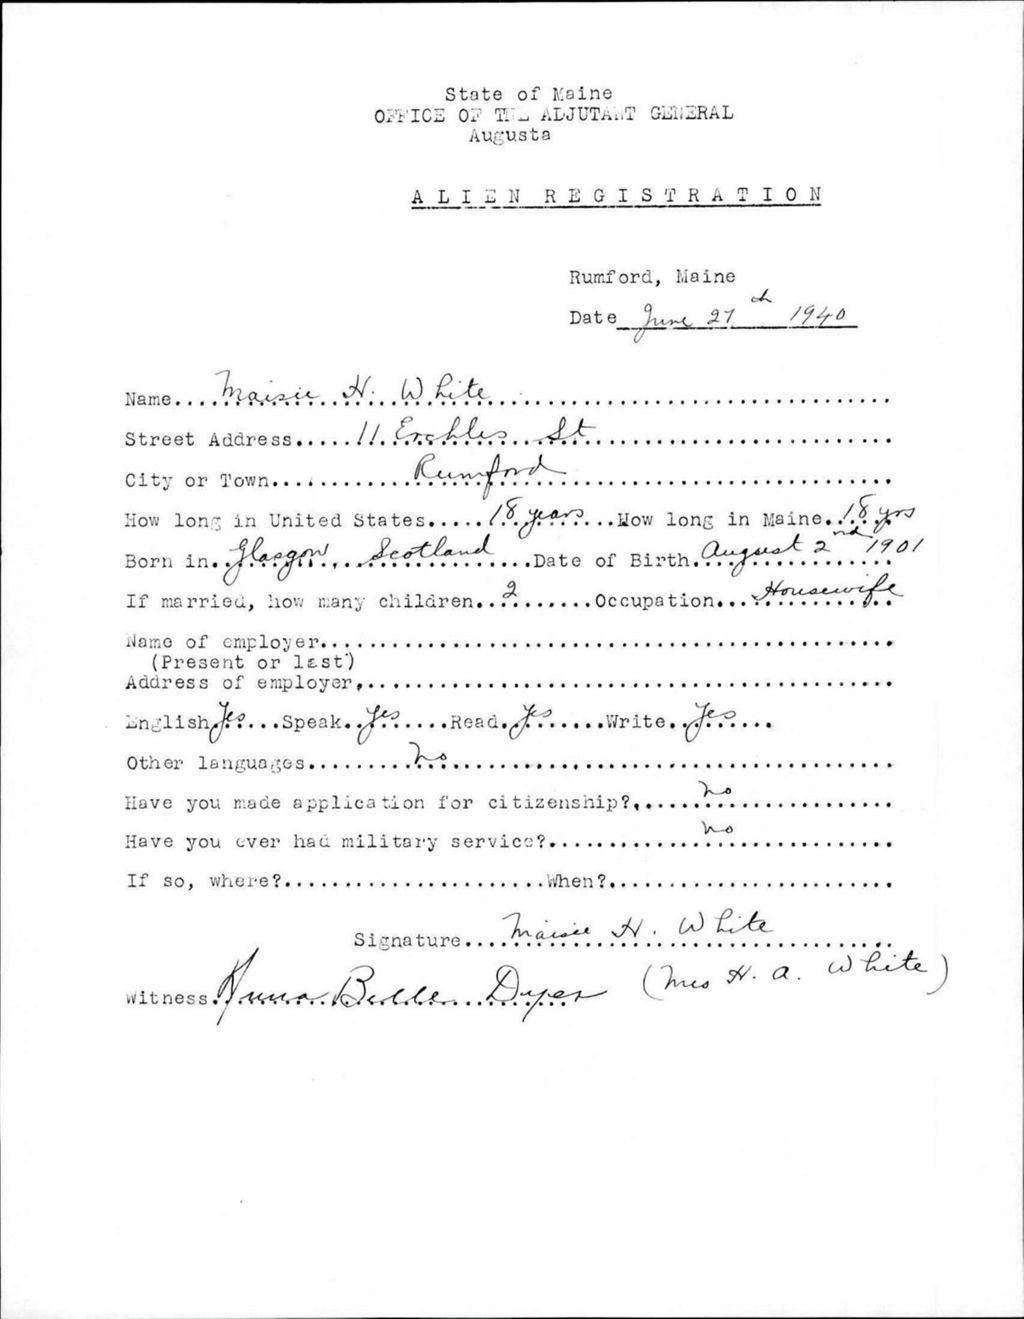 State of Maine
OFFICE OF THE ADJUTANT GENERAL
Augusta
ALIEN REGISTRATION
Rumford, Maine
Date June 27th 1940
Name....Maisie H. White
Street Address.....11 Erchles St
City or Town....Rumford
How long in United States.....18 years...How long in Maine..18 yrs
Born in..Glasgow, Scotland...Date of Birth.August 2nd 1901
If married, how many children..2.......Occupation...Housewife
Name of employer
(Present or last)
Address of employer
English Yes...Speak..Yes.....Read.Yes......Write..Yes....
Other languages.........No
Have you made application for citizenship?....No
Have you ever had military service?....No
If so, where?......................When?
Signature....Maisie H. White
Witness.Anna Belle Dyer (Mrs H. A. White)